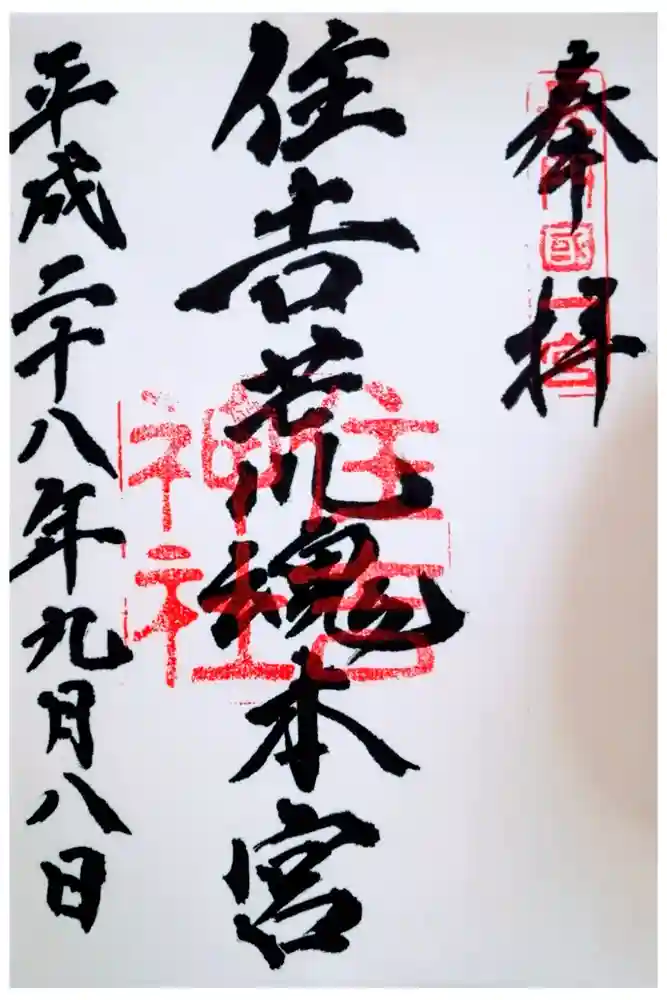 奉拝
長門國一宮
住吉荒魂本宮
住吉神社
平成二十八年九月八日